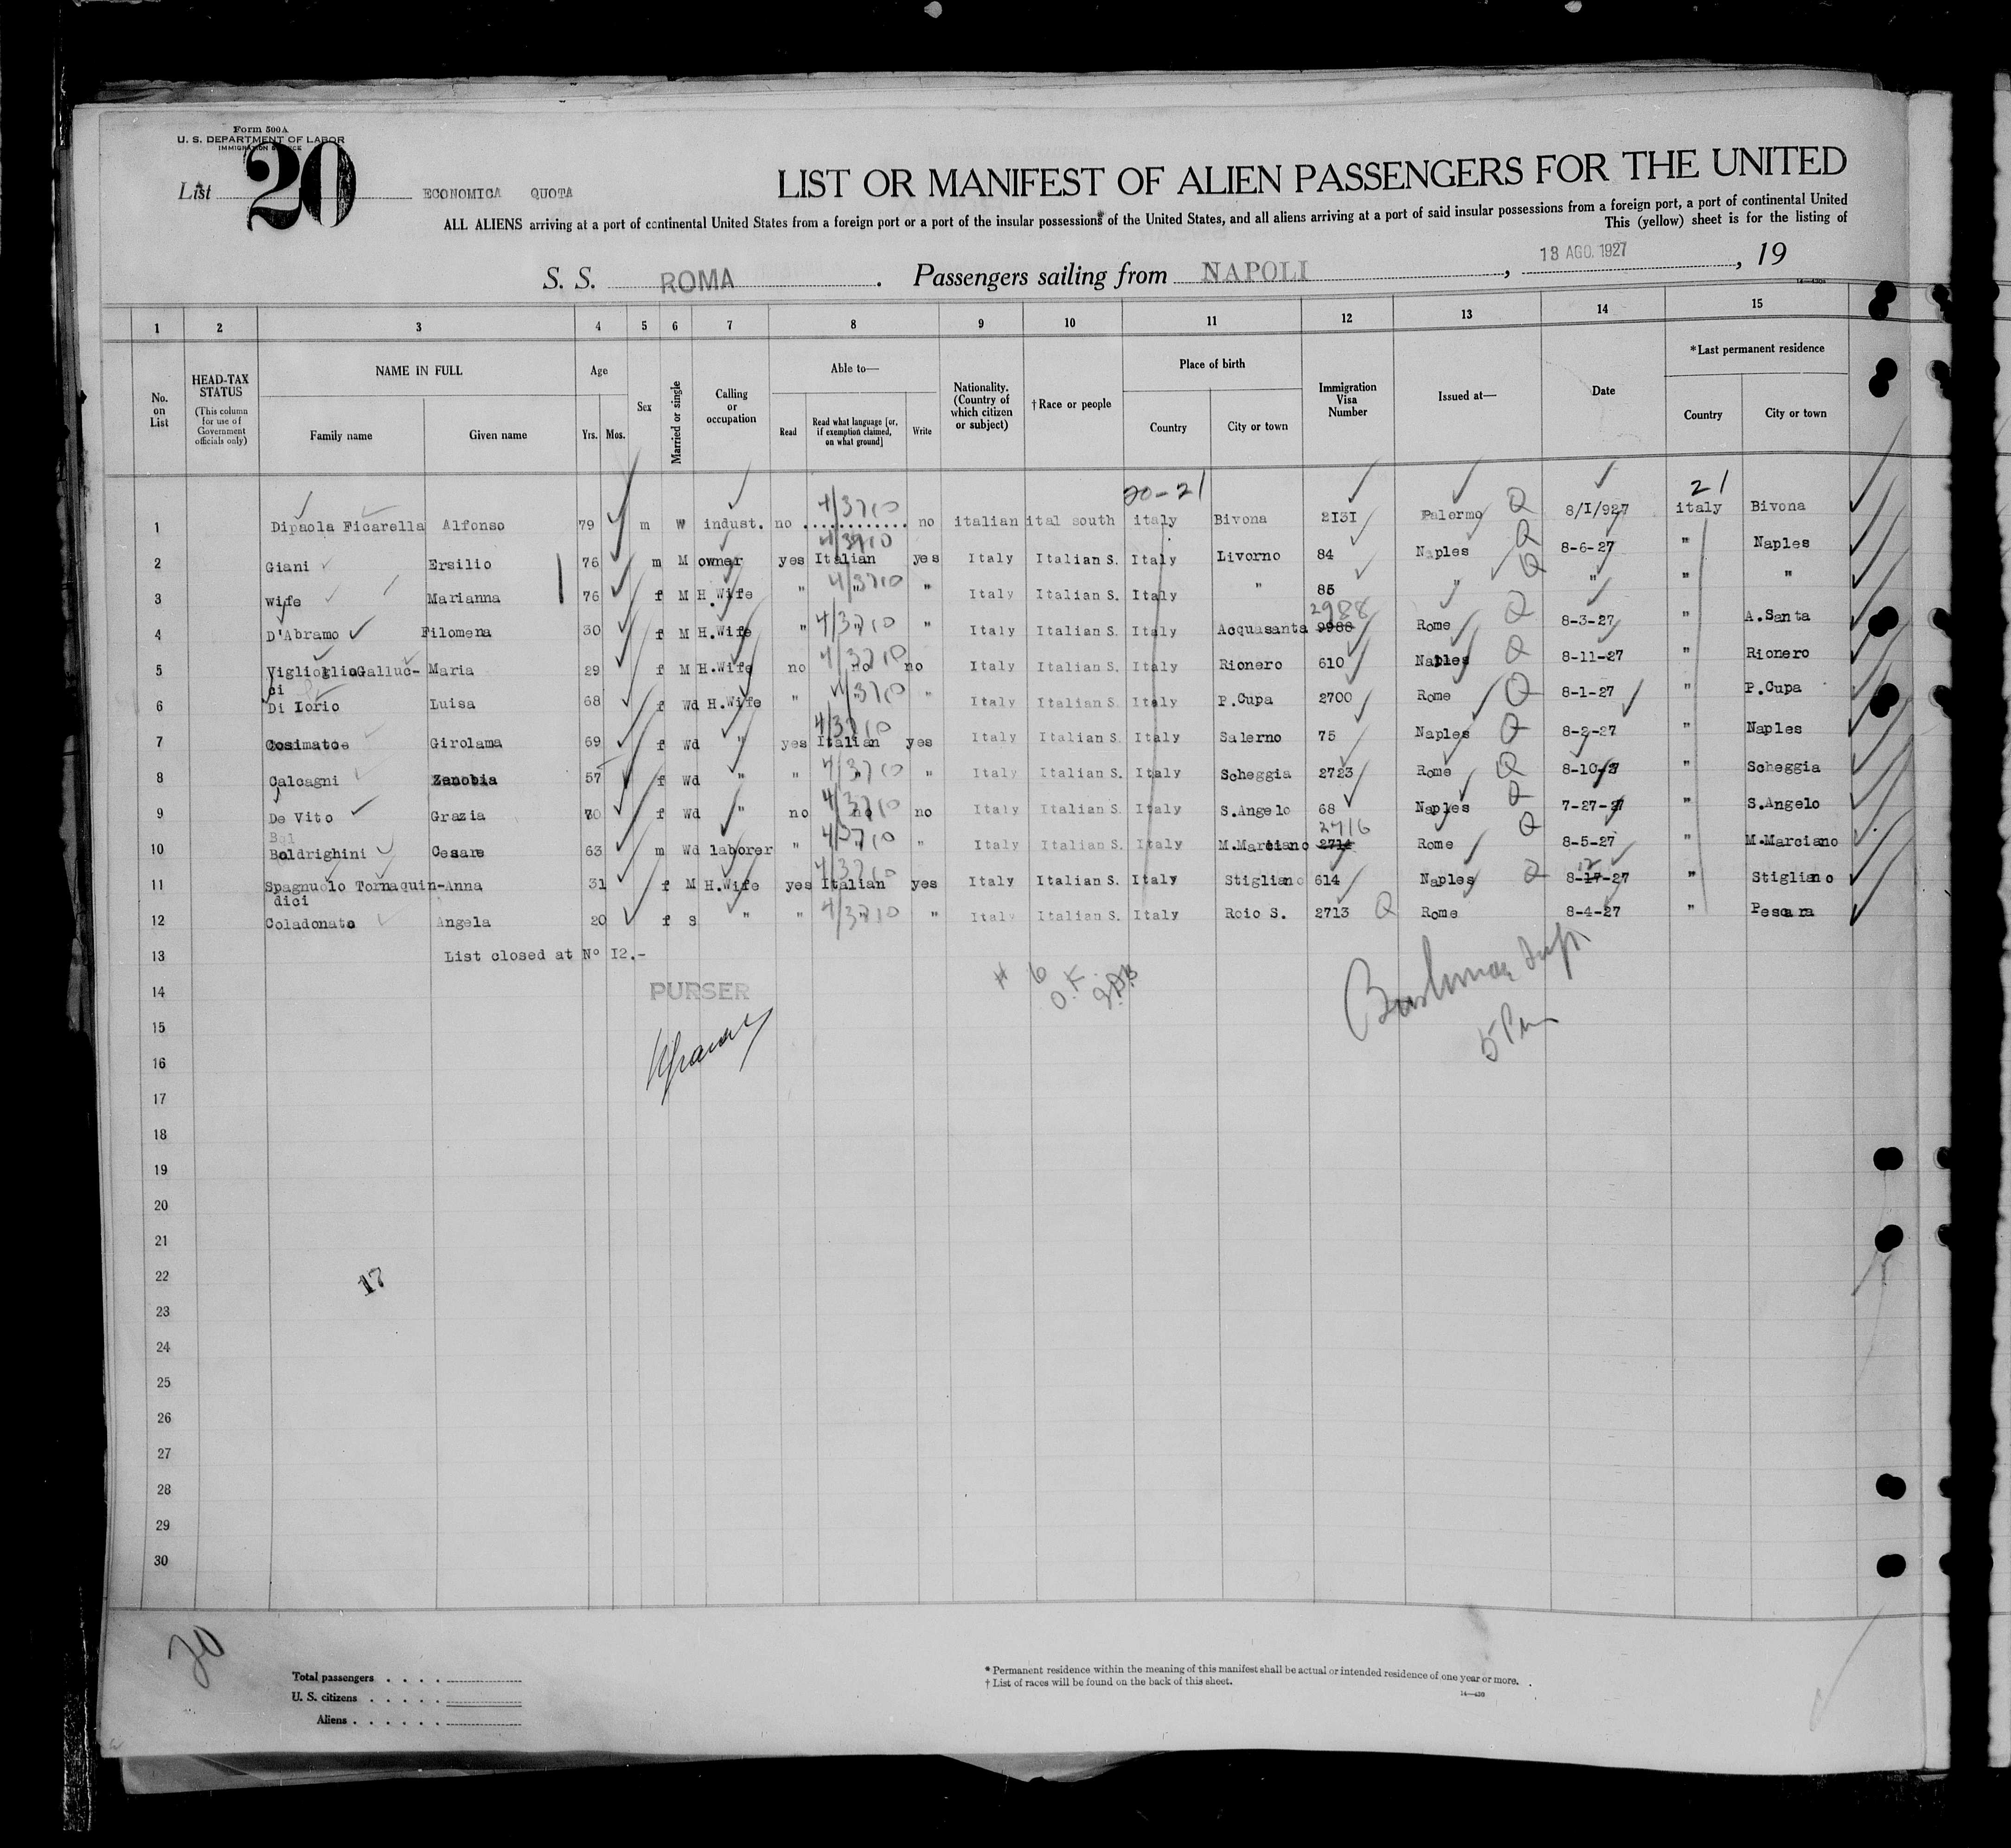 Form 500A
U. S. DEPARTMENT OF LABOR
IMMIGRATION SERVICE
List 20 ECONOMICA QUOTA
LIST OR MANIFEST OF ALIEN PASSENGERS FOR THE UNITED
ALL ALIENS arriving at a port of continental United States from a foreign port or a port of the insular possessions of the United States, and all aliens arriving at a port of said insular possessions from a foreign port, a port of continental United
This (yellow) sheet is for the listing of
S. S. ROMA. Passengers sailing from NAPOLI, 18 AGO. 1927, 19
1 2 3 4 5 6 7 8 9 10 11 12 13 14 15
No. on List
HEAD-TAX STATUS
(This column for use of Government officials only)
NAME IN FULL
Family name Given name
Age
Yrs. Mos.
Sex
Married or single
Calling or occupation
Able to—
Read
Read what language [or, if exemption claimed, on what ground]
Write
Nationality. (Country of which citizen or subject)
†Race or people
Place of birth
Country City or town
Immigration Visa Number
Issued at—
Date
*Last permanent residence
Country City or town
20-21 21
1 Dipaola Ficarella Alfonso 79 m W indust. no 4/3710 no italian ital south italy Bivona 2I3I Palermo Q 8/I/927 italy Bivona
2 Giani Ersilio 76 m M owner yes Italian 4/3710 yes Italy Italian S. Italy Livorno 84 Naples Q 8-6-27 " Naples
3 wife Marianna 76 f M H.Wife " " 4/3710 " Italy Italian S. Italy " 85 " Q " " "
4 D'Abramo Filomena 30 f M H.Wife " " 4/3710 " Italy Italian S. Italy Acquasanta 9988 2988 Rome Q 8-3-27 " A.Santa
5 ViglioglioGalluc-ci Maria 29 f M H.Wife no no 4/3710 no Italy Italian S. Italy Rionero 610 Naples Q 8-11-27 " Rionero
6 Di Iorio Luisa 68 f Wd H.Wife " " 4/3710 " Italy Italian S. Italy P.Cupa 2700 Rome Q 8-1-27 " P.Cupa
7 Cosimatoe Girolama 69 f Wd " yes Italian 4/3710 yes Italy Italian S. Italy Salerno 75 Naples Q 8-2-27 " Naples
8 Calcagni Zenobia 57 f Wd " " " 4/3710 " Italy Italian S. Italy Scheggia 2723 Rome Q 8-10-27 " Scheggia
9 De Vito Grazia 70 f Wd " no no 4/3710 no Italy Italian S. Italy S.Angelo 68 Naples Q 7-27-27 " S.Angelo
Bal
10 Boldrighini Cesare 63 m Wd laborer " " 4/3710 " Italy Italian S. Italy M.Marciano 2714 2716 Rome Q 8-5-27 " M.Marciano
11 Spagnuolo Tornaquin-dici Anna 31 f M H.Wife yes Italian 4/3710 yes Italy Italian S. Italy Stigliano 614 Naples Q 8-17-27 12 " Stigliano
12 Coladonato Angela 20 f S " " " 4/3710 " Italy Italian S. Italy Roio S. 2713 Q Rome 8-4-27 " Pescara
13 List closed at Nº I2.-
14 PURSER # 6 O.K.
15
16
17
18
19
20
21
22 17
23
24
25
26
27
28
29
30
20
Total passengers
U. S. citizens
Aliens
* Permanent residence within the meaning of this manifest shall be actual or intended residence of one year or more.
† List of races will be found on the back of this sheet.
14—430